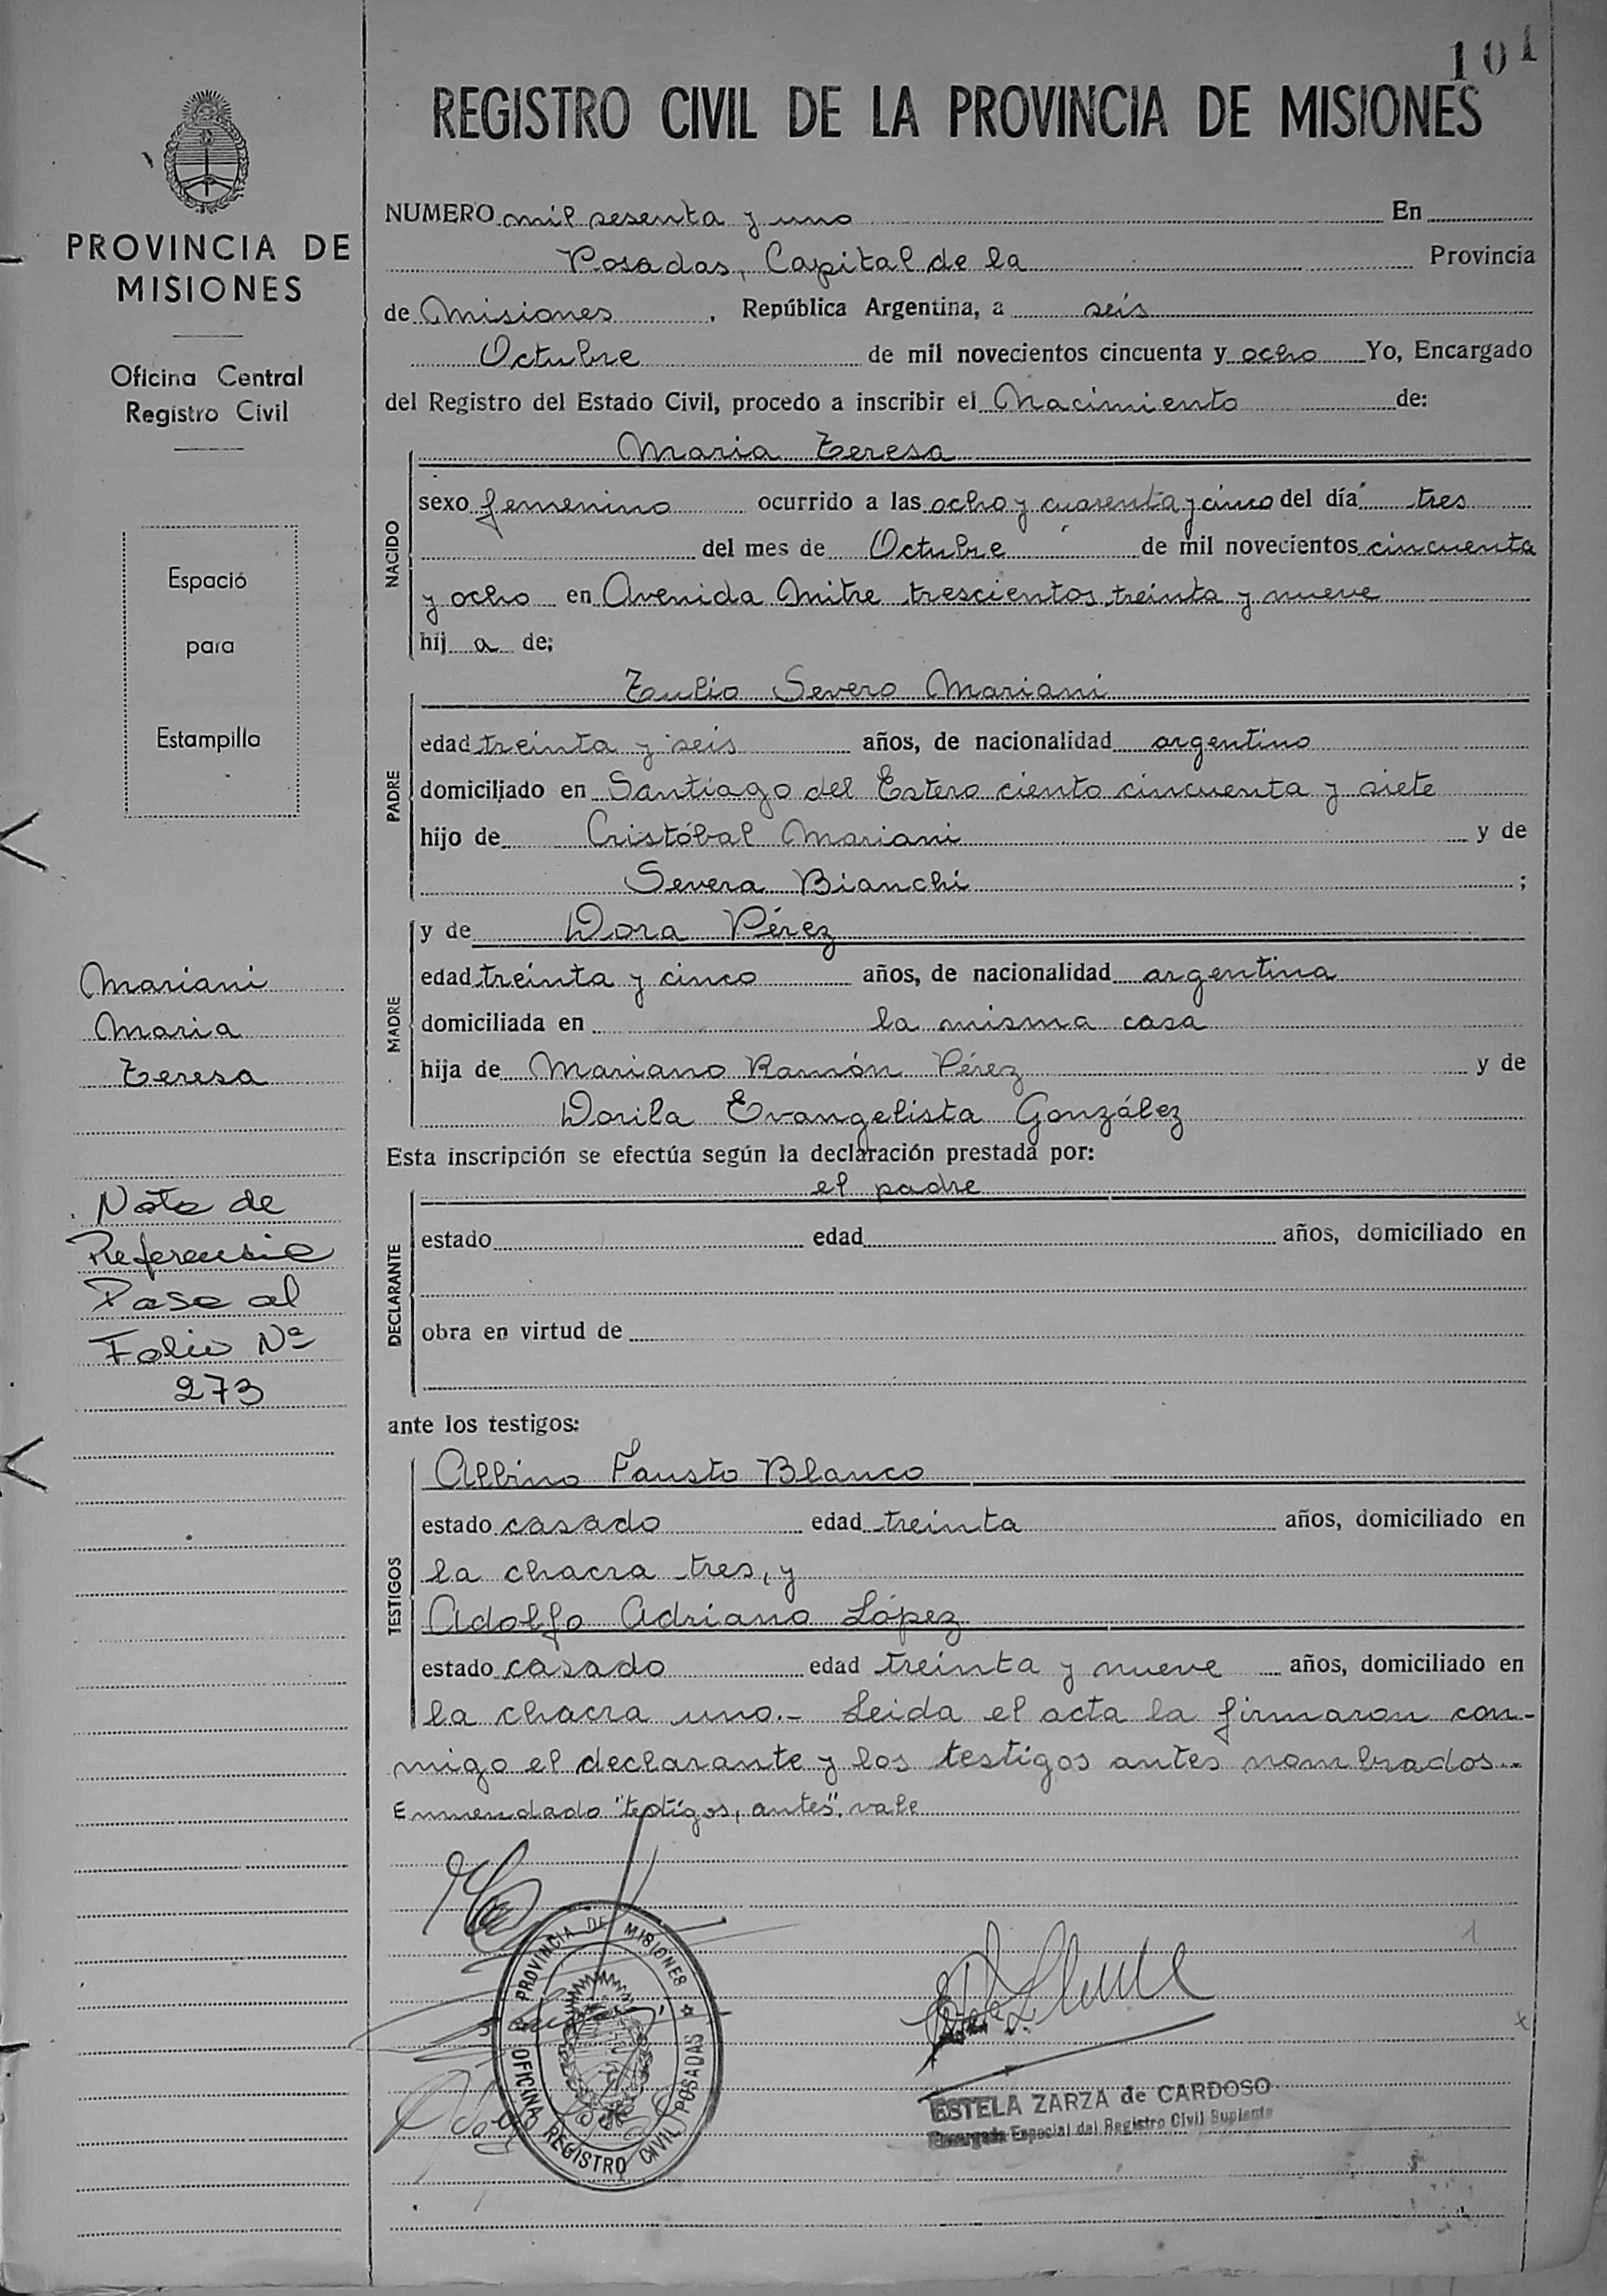 101
REGISTRO CIVIL DE LA PROVINCIA DE MISIONES
PROVINCIA DE
MISIONES
Oficina Central
Registro Civil
Espació
para
Estampilla
Mariani
Maria
Teresa
Nota de
Referencia
Pase al
Folio Nº
273
NUMERO mil sesenta y uno En
Posadas, Capital de la Provincia
de Misiones, República Argentina, a seis
Octubre de mil novecientos cincuenta y ocho Yo, Encargado
del Registro del Estado Civil, procedo a inscribir el Nacimiento de:
NACIDO
Maria Teresa
sexo femenino ocurrido a las ocho y cuarenta y cinco del día tres
del mes de Octubre de mil novecientos cincuenta
y ocho en Avenida Mitre trescientos treinta y nueve
hij a de:
PADRE
Tulio Severo Mariani
edad treinta y seis años, de nacionalidad argentino
domiciliado en Santiago del Estero ciento cincuenta y siete
hijo de Cristóbal Mariani y de
Severa Bianchi ;
MADRE
y de Dora Pérez
edad treinta y cinco años, de nacionalidad argentina
domiciliada en la misma casa
hija de Mariano Ramón Pérez y de
Dorila Evangelista González
Esta inscripción se efectúa según la declaración prestada por:
DECLARANTE
el padre
estado edad años, domiciliado en
obra en virtud de
ante los testigos:
TESTIGOS
Albino Fausto Blanco
estado casado edad treinta años, domiciliado en
la chacra tres, y
Adolfo Adriano López
estado casado edad treinta y nueve años, domiciliado en
la chacra uno.- Leida el acta la firmaron con-
migo el declarante y los testigos antes nombrados.-
Enmendado "testigos, antes". vale
PROVINCIA DE MISIONES
OFICINA REGISTRO CIVIL POSADAS
ESTELA ZARZA de CARDOSO
Encargada Especial del Registro Civil Suplente